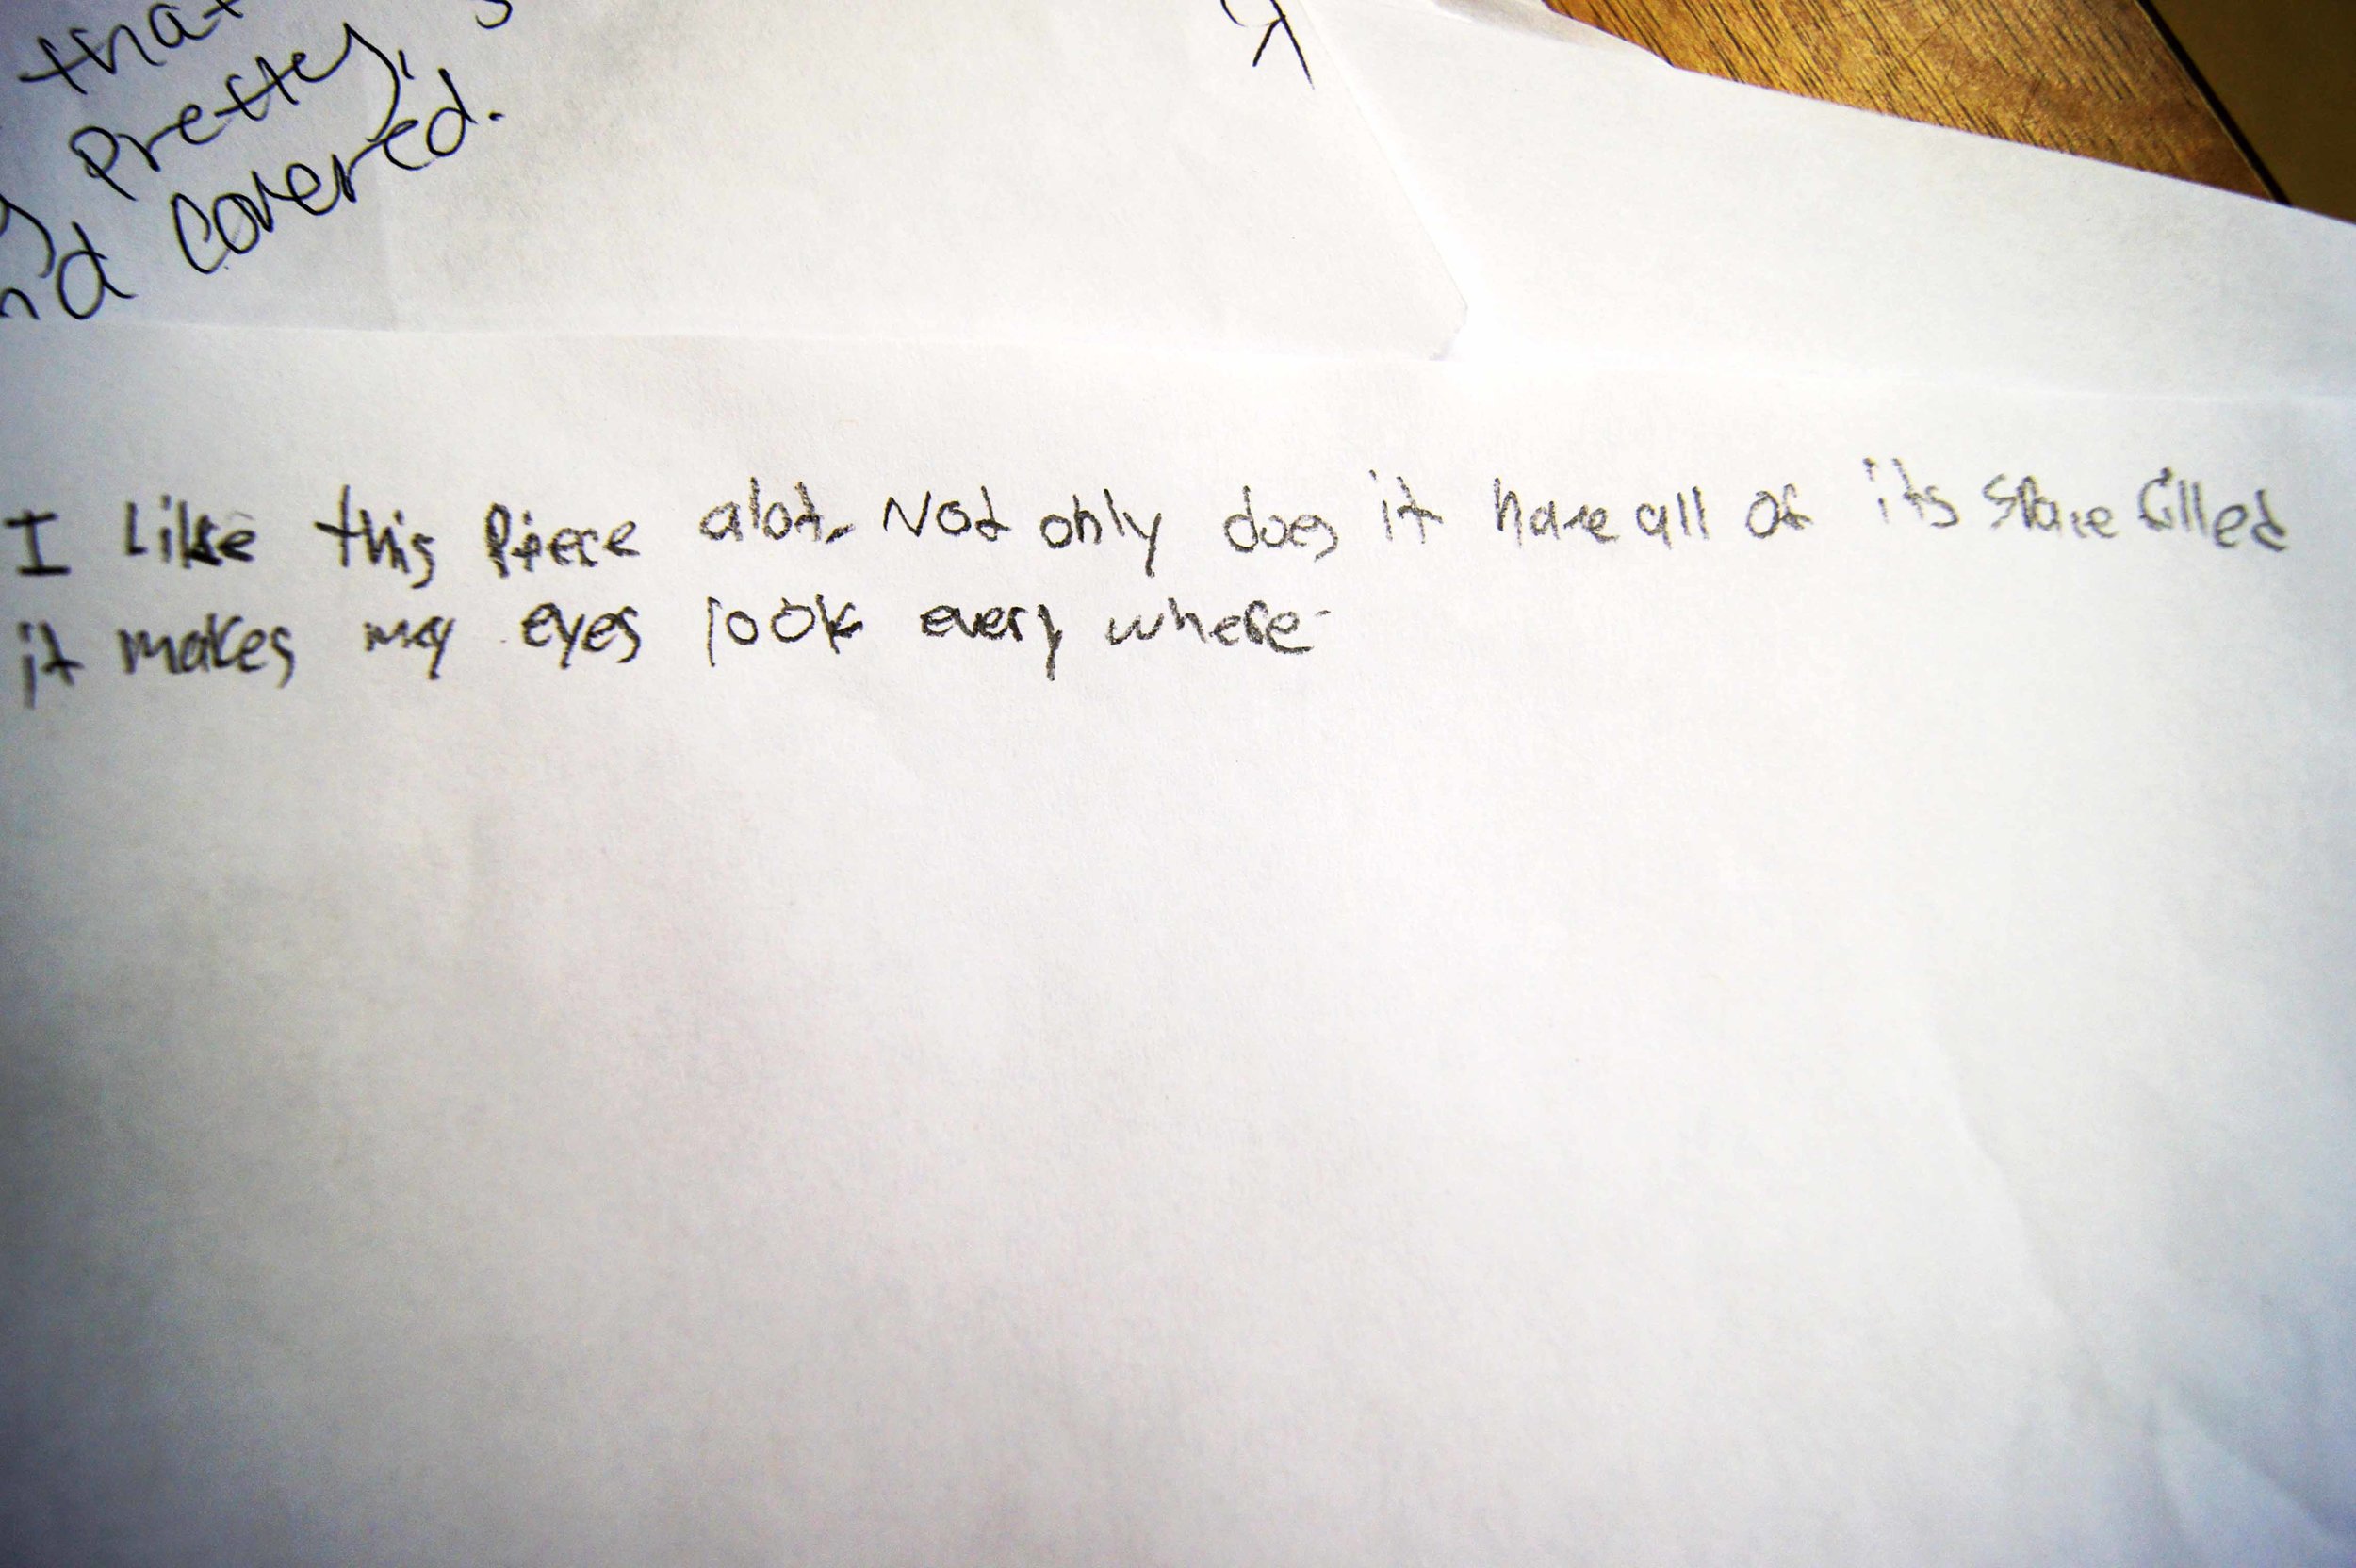 that
pretty,
nd covered.
I Like this Piece alot. Not only does it have all of its space filled
it makes my eyes look every where.